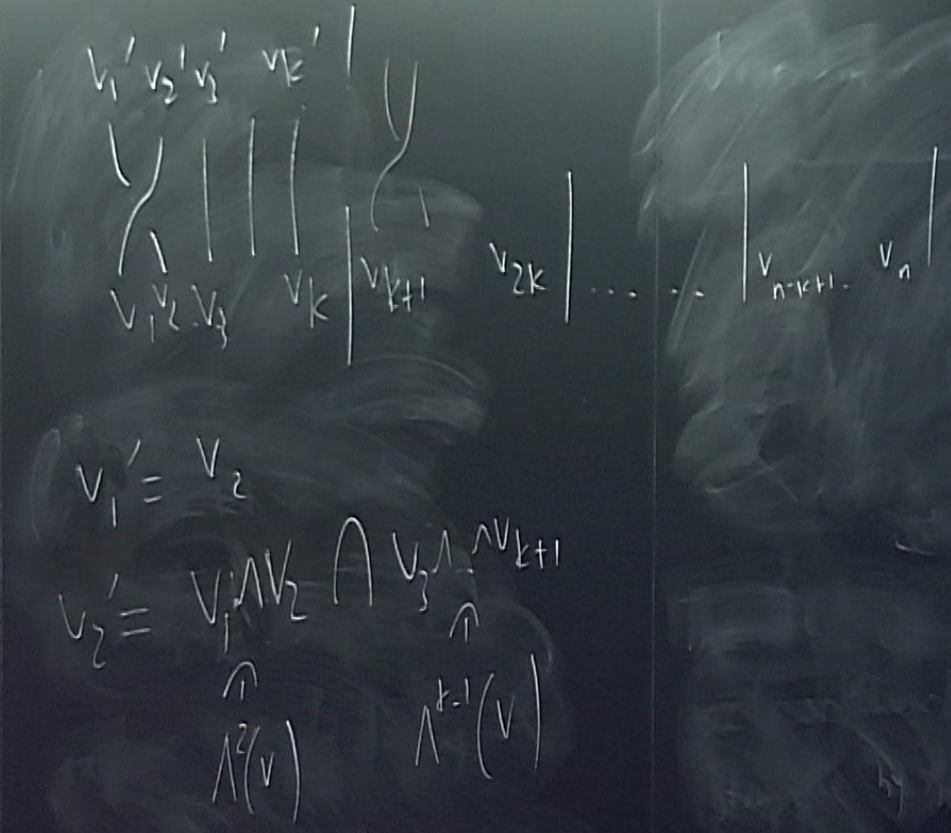 v₁' v₂' v₃' vₖ'
v₁ v₂ . v₃ vₖ | vₖ₊₁ v₂ₖ | ... .. | vₙ₋ₖ₊₁ . vₙ |
v₁' = v₂
v₂' = v₁∧v₂ ∩ v₃∧..∧vₖ₊₁
∩ ∩
Λ²(V) Λᵏ⁻¹(V)